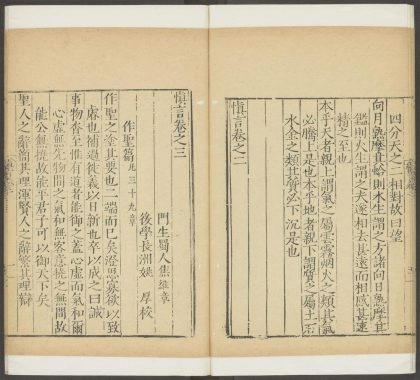 四分天之二相對故曰望
向月熟摩其蛤則水生謂之方諸向日熟摩其
鑑則火生謂之夫遂相去甚遠而相感甚速
精之至也
本乎天者親上謂氣之屬雲霧煙火之類其氣
必騰上是也本乎地者親下謂質之屬土石
水金之類其質必下沉是也
慎言卷之二
慎言卷之三
門生蜀人焦維章
後學長洲姚厚校
作聖篇凡三十九章
作聖之塗其要也二端而已矣澄思寡欲以致
睿也補過徙義以日新也卒以成之曰誠
事物沓至惟有道者能御之蓋心虛而氣和爾
心虛無先物間之氣和無客意撓之無間故
能公無撓故能平君子可以御天下矣
聖人之辭簡其理渾賢人之辭繁其理辯